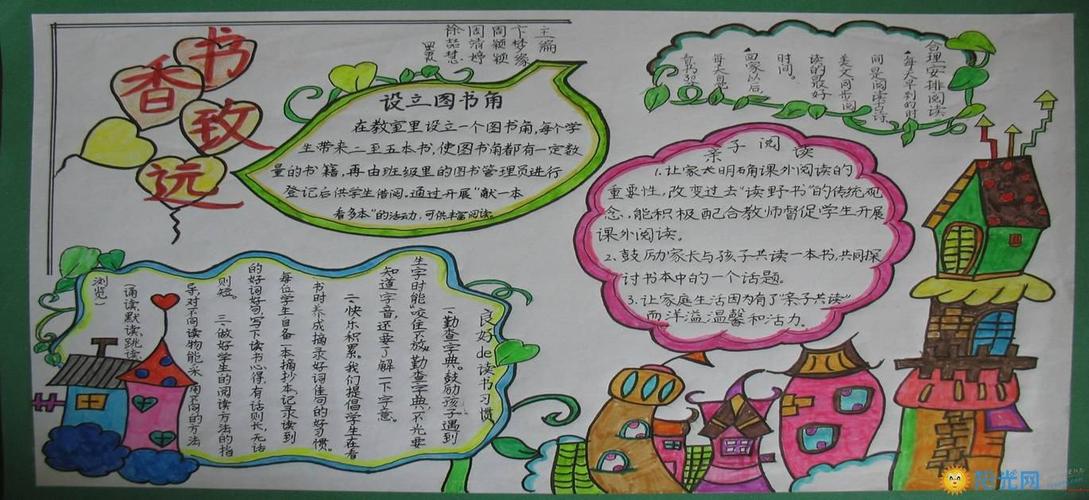 书香致远
主编
卞梦缘
周颖颖
周清婷
徐喆慧
设立图书角
在教室里设立一个图书角,每个学
生带来二至五本书,使图书角都有一定数
量的书籍,再由班级里的图书管理员进行
登记后供学生借阅,通过开展"献一本
看多本"的活动,可供丰富阅读。
合理安排阅读
每天早到的时
间是阅读古诗
美文同步阅
读的最好
时间。
回家以后,
每天自觉
亲子阅读
1.让家长明确课外阅读的
重要性,改变过去"读野书"的传统观
念,能积极配合教师督促学生开展
课外阅读。
2.鼓励家长与孩子共读一本书,共同探
讨书本中的一个话题。
3.让家庭生活因为有了"亲子共读"
而洋溢温馨和活力。
良好de读书习惯
一、勤查字典。鼓励孩子遇到
生字时能"咬住不放"勤查字典,不光要
知道字音,还要了解一下字意。
二、快乐积累。我们提倡学生在看
书时养成摘录好词佳句的好习惯。
每位学生自备一本摘抄本,记录读到
的好词好句,写下读书心得,有话则长,无话
则短。三、做好学生的阅读方法的指
导,对不同读物能采用不同的方法
(诵读默读,跳读
浏览)
阳光网